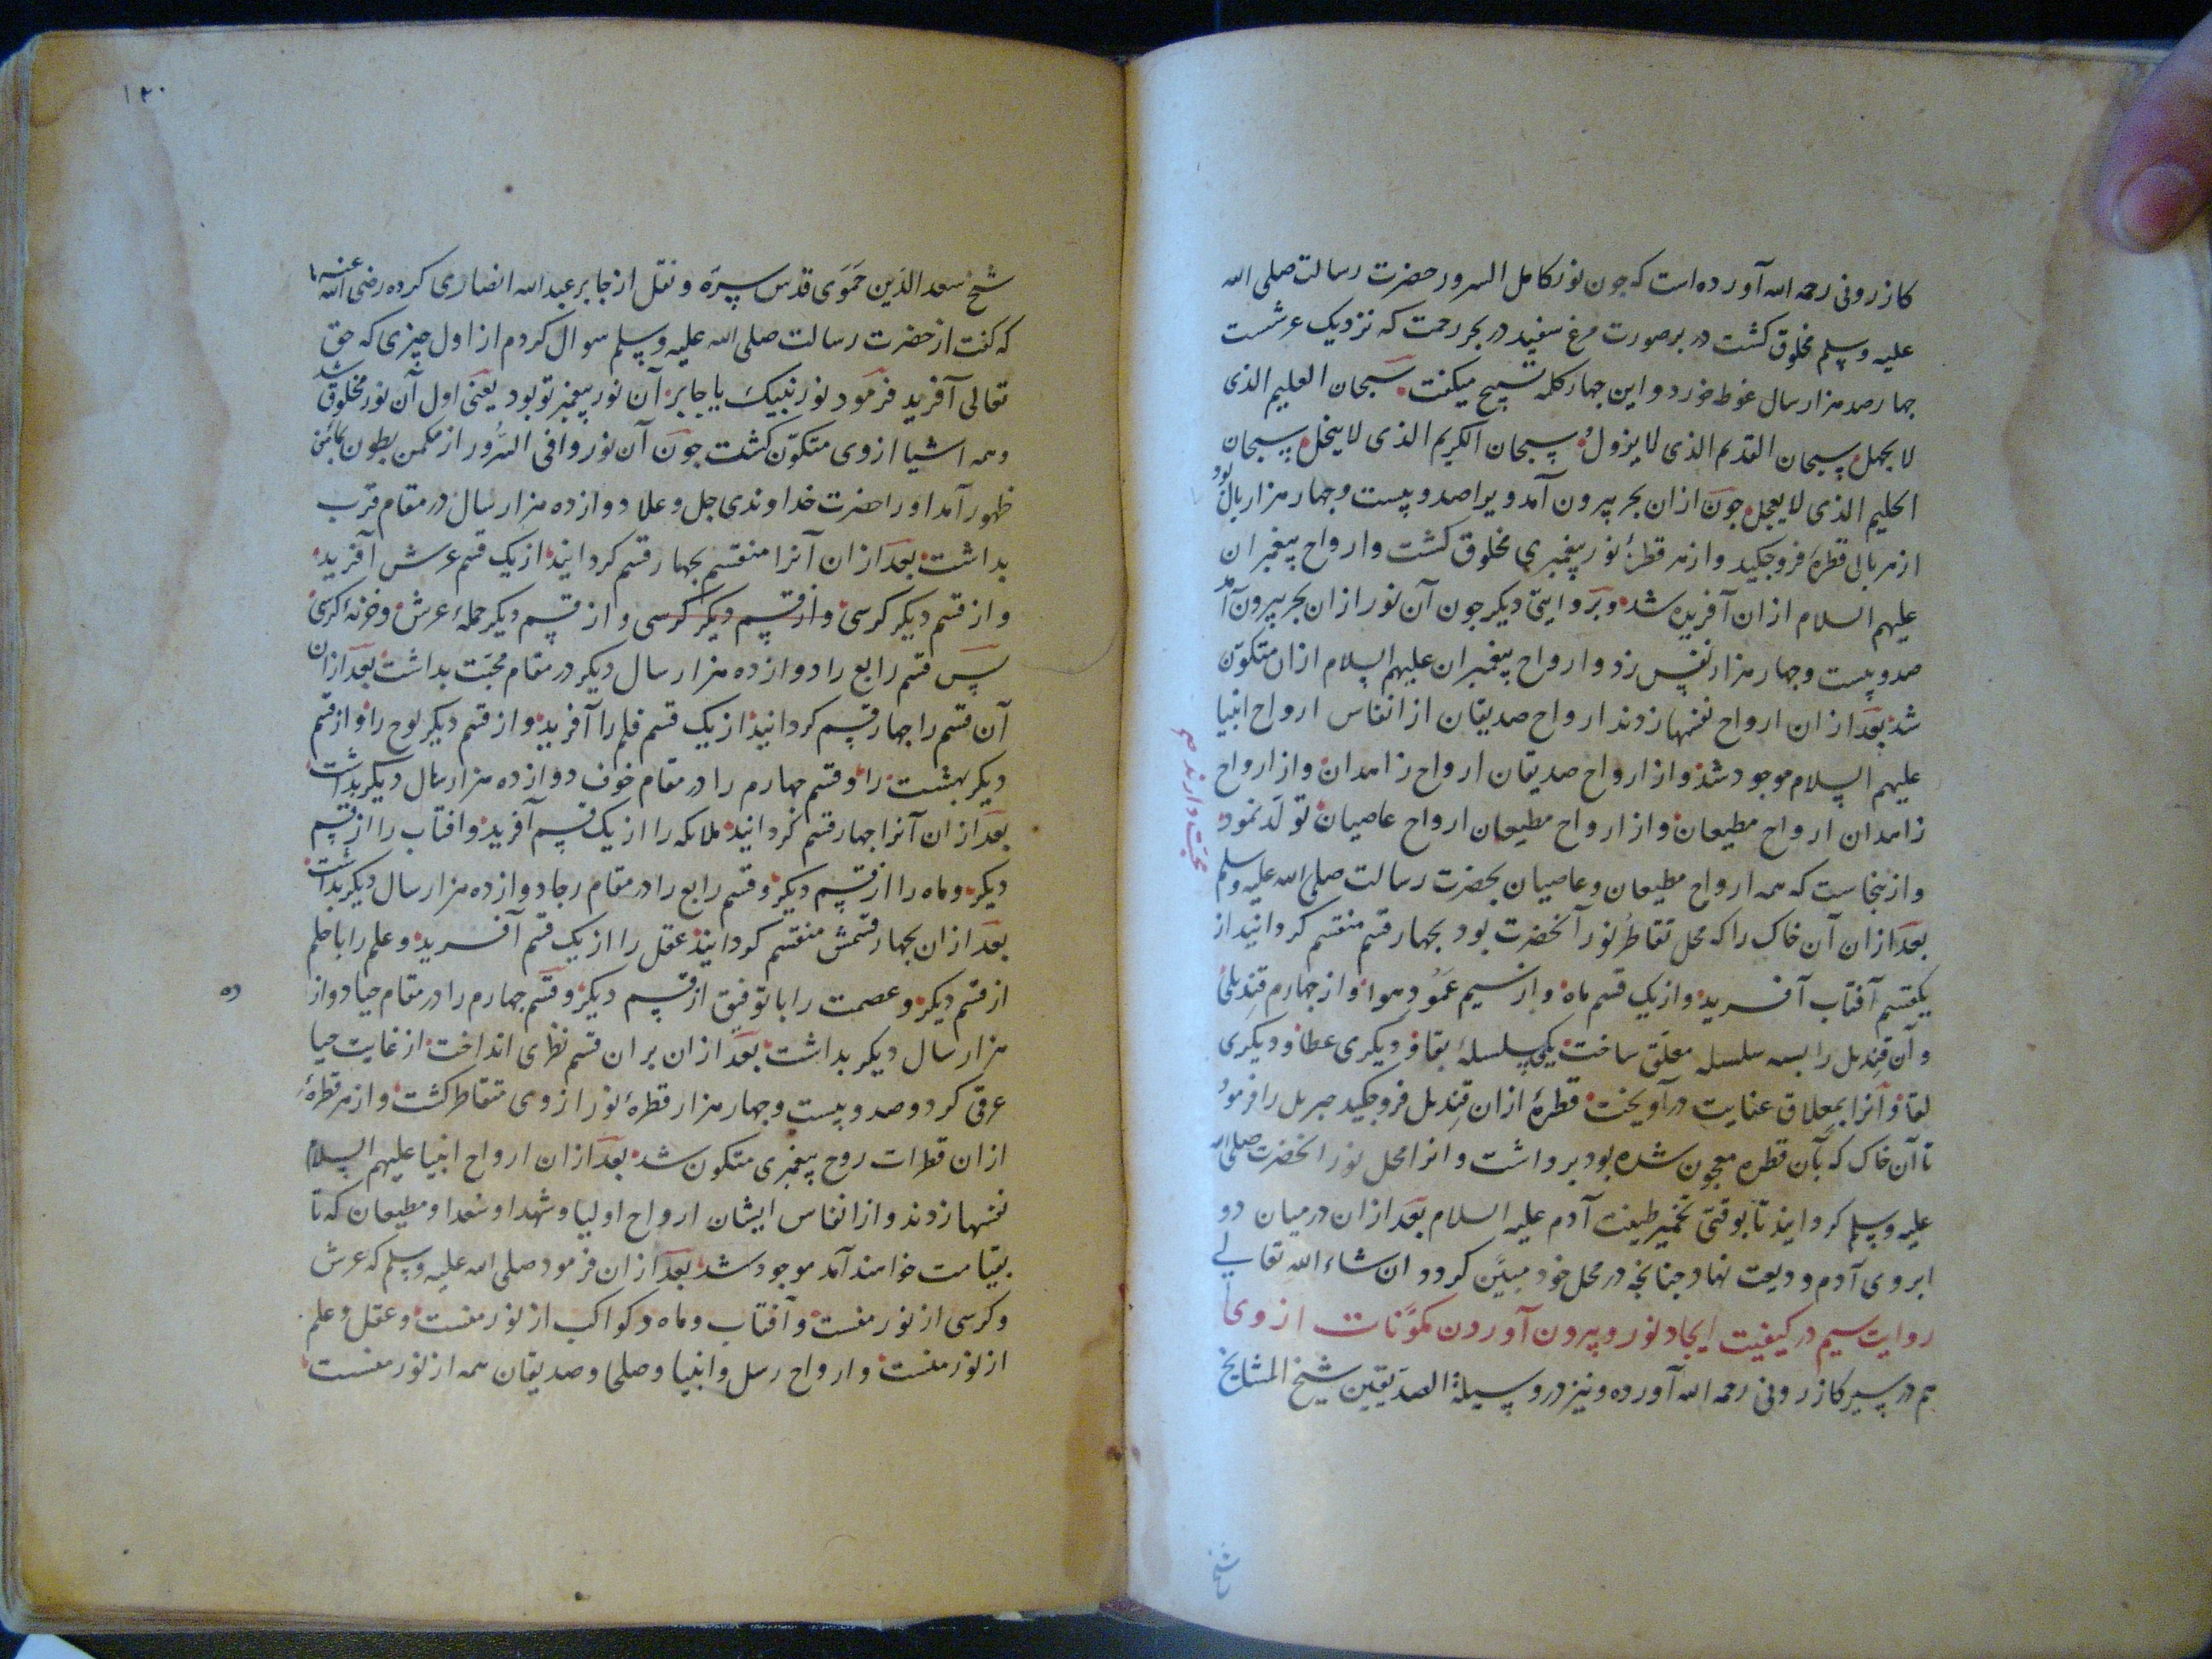 کازرونی رحمه الله آورده است که جون نور کامل السرور حضرت رسالت صلی الله
علیه وسلم مخلوق کشت در بر صورت مرغ سفید در بحر رحمت که نزدیک عرشست
جهارصد هزار سال غوطه خورد و این جهار کلمه تسبیح میکفت سبحان العلیم الذی
لا یجهل سبحان القدیم الذی لا یزول سبحان الکریم الذی لا یبخل سبحان
الحلیم الذی لا یعجل جون ازان بحر بیرون آمد ویرا صد و بیست و جهار هزار بال بود
از هر بالی قطرهٔ فروجکید و از هر قطرهٔ نور پیغمبری مخلوق کشت و ارواح پیغمبران
علیهم السلام ازان آفریده شد و بروایتی دیکر جون آن نور ازان بحر بیرون آمد
صد و بیست و جهار هزار نفس زد و ارواح پیغمبران علیهم السلام ازان متکوّن
شد بعد ازان ارواح نفسها زدند ارواح صدیقان از انفاس ارواح انبیا
علیهم السلام موجود شد و از ارواح صدیقان ارواح زاهدان و از ارواح
زاهدان ارواح مطیعان و از ارواح مطیعان ارواح عاصیان تولّد نمود
و ازینجاست که همه ارواح مطیعان و عاصیان بحضرت رسالت صلی الله علیه وسلم
محبت دارند صح
بعد ازان آن خاک را که محل تقاطر نور آنحضرت بود بجهار قسم منقسم کردانید از
یکقسم آفتاب آفرید و از یک قسم ماه و از سیم عمود هوا و از جهارم قندیلی
و آن قندیل را بسه سلسله معلّق ساخت یکی سلسلهٔ بقا و دیکری عطا و دیکری
لقا و آنرا بمعلاق عنایت درآویخت قطرهٔ ازان قندیل فروجکید جبریل را فرمود
تا آن خاک که بآن قطره معجون شده بود برداشت و انرا محل نور انحضرت صلی الله
علیه وسلم کردانید تا بوقتی تخمیر طینت آدم علیه السلام بعد ازان در میان دو
ابروی آدم ودیعت نهاد جنانجه در محل خود مبیّن کردد ان شاء الله تعالی
روایت سیم در کیفیت ایجاد نور و بیرون آوردن مکوّنات از وی
هم در سیر کازرونی رحمه الله آورده و نیز در وسیلة الصدیقین شیخ المشایخ
شیخ
۱۲۰
شیخ سعد الدّین حمّوی قدس سرّه و نقل از جابر عبد الله انصاری کرده رضی الله عنهما
که کفت از حضرت رسالت صلی الله علیه وسلم سوال کردم از اول چیزی که حق
تعالی آفرید فرمود نور نبیک یا جابر آن نور پیغمبر تو بود یعنی اول آن نور مخلوق شد
و همه اشیا از وی متکوّن کشت جون آن نور وافی السّرور از مکمن بطون بمأمن
ظهور آمد او را حضرت خداوندی جل و علا دوازده هزار سال در مقام قرب
بداشت بعد ازان آنرا منقسم بجهار قسم کردانید از یک قسم عرش آفرید
و از قسم دیکر کرسی و از قسم دیکر کرسی و از قسم دیکر حملهٔ عرش و خزنهٔ کرسی
پس قسم رابع را دوازده هزار سال دیکر در مقام محبّت بداشت بعد ازان
آن قسم را جهار قسم کردانید از یک قسم قلم را آفرید و از قسم دیکر لوح را و از قسم
دیکر بهشت را و قسم جهارم را در مقام خوف دوازده هزار سال دیکر بداشت
بعد ازان آنرا جهار قسم کردانید ملایکه را از یک قسم آفرید و افتاب را از قسم
دیکر و ماه را از قسم دیکر و قسم رابع را در مقام رجا دوازده هزار سال دیکر بداشت
بعد ازان بجهار قسمش منقسم کردانید عقل را از یک قسم آفرید و علم را با حلم
از قسم دیکر و عصمت را با توفیق از قسم دیکر و قسم جهارم را در مقام حیا دواز
ده
هزار سال دیکر بداشت بعد ازان بران قسم نظری انداخت از غایت حیا
عرق کرد و صد و بیست و جهار هزار قطرهٔ نور از وی متقاطر کشت و از هر قطرهٔ
ازان قطرات روح پیغمبری متکون شد بعد ازان ارواح انبیا علیهم السلام
نفسها زدند و از انفاس ایشان ارواح اولیا و شهدا و سُعدا و مطیعان که تا
بقیامت خواهند آمد موجود شد بعد ازان فرمود صلی الله علیه وسلم که عرش
و کرسی از نور منست و آفتاب و ماه و کواکب از نور منست و عقل و علم
از نور منست و ارواح رسل و انبیا و صلحا و صدیقان همه از نور منست